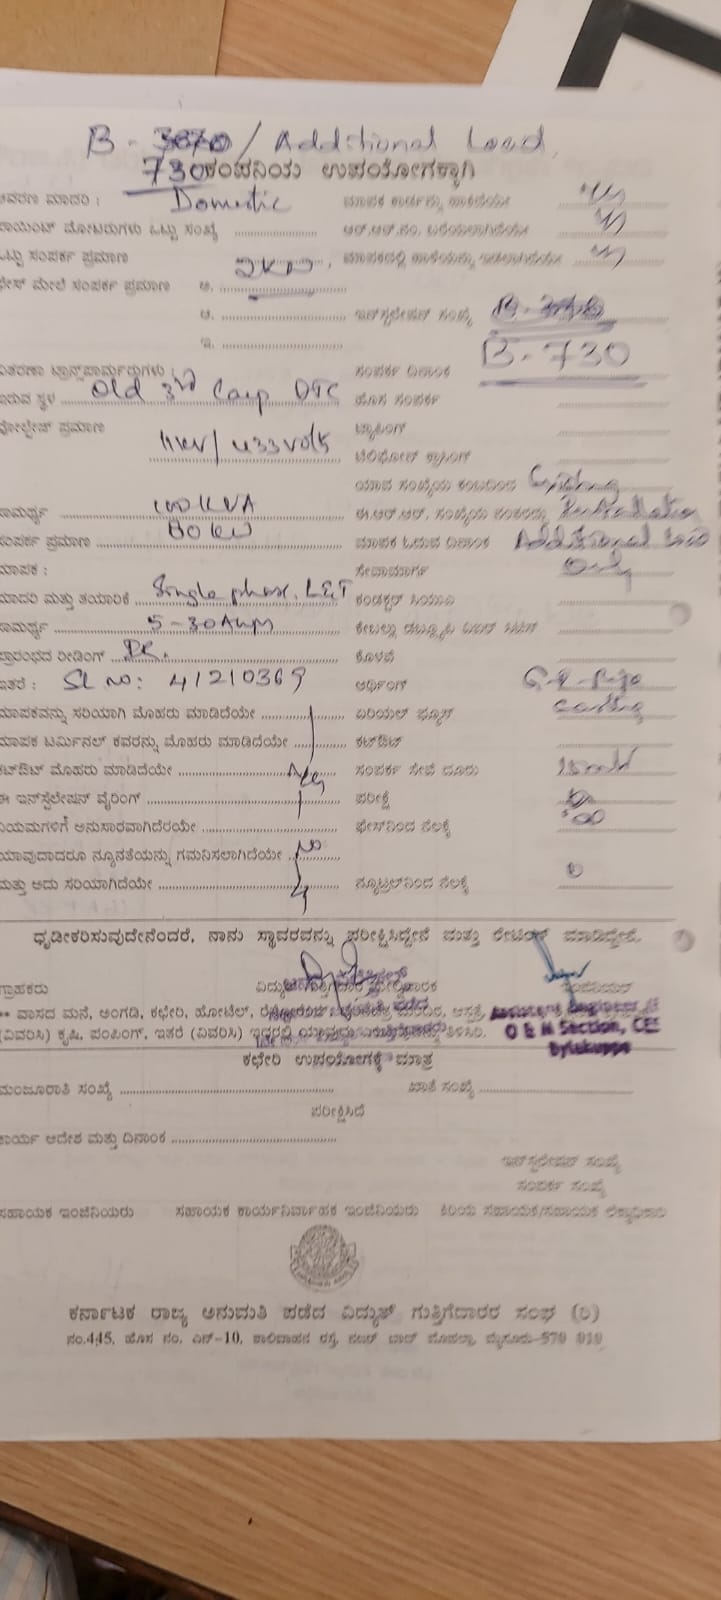 B - 3670 / Additional Load
730 ಕಂಪನಿಯ ಉಪಯೋಗಕ್ಕಾಗಿ
ಆವರಣ ಮಾದರಿ : Domestic ಮಾಪಕ ಕಾರ್ಡನ್ನು ಹಾಕಿದೆಯೇ
ಪಾಯಿಂಟ್ ಮೋಟರುಗಳು ಒಟ್ಟು ಸಂಖ್ಯೆ ಆರ್.ಆರ್.ನಂ. ಬರೆಯಲಾಗಿದೆಯೇ
ಒಟ್ಟು ಸಂಪರ್ಕ ಪ್ರಮಾಣ 2KW
ಫೇಸ್ ಮೇಲೆ ಸಂಪರ್ಕ ಪ್ರಮಾಣ ಅ.
ಆ. ಇನ್‌ಸ್ಟಲೇಷನ್ ಸಂಖ್ಯೆ
ಇ. B-730
ವಿತರಣಾ ಟ್ರಾನ್ಸ್‌ಫಾರ್ಮರುಗಳು : ಸಂಪರ್ಕ ದಿನಾಂಕ
ಇರುವ ಸ್ಥಳ Old 3rd Camp DTC ಹೊಸ ಸಂಪರ್ಕ
ವೋಲ್ಟೇಜ್ ಪ್ರಮಾಣ 11KV/433Volts ಟ್ಯಾಪಿಂಗ್
ಟೆಲಿಫೋನ್ ಕ್ರಾಸಿಂಗ್
ಯಾವ ಸಂಖ್ಯೆಯ ಕಂಬದಿಂದ Existing
ಸಾಮರ್ಥ್ಯ 100KVA ಈ.ಆರ್.ಆರ್. ಸಂಖ್ಯೆಯ ನಂತರದ್ದು Installation
ಸಂಪರ್ಕ ಪ್ರಮಾಣ 80KW ಮಾಪಕ ಓದುವ ದಿನಾಂಕ Additional Load
ಮಾಪಕ : ಸೇವಾಮಾರ್ಗ Only
ಮಾದರಿ ಮತ್ತು ತಯಾರಿಕೆ Single phase, L&T
ಸಾಮರ್ಥ್ಯ 5-30Amps
ಪ್ರಾರಂಭದ ರೀಡಿಂಗ್ ಕೊಳವೆ
ಇತರೆ : Sl No: 41210369 ಅರ್ಥಿಂಗ್ G.I-Pipe
ಮಾಪಕವನ್ನು ಸರಿಯಾಗಿ ಮೊಹರು ಮಾಡಿದೆಯೇ ಏರಿಯಲ್ ಫ್ಯೂಸ್
ಮಾಪಕ ಟರ್ಮಿನಲ್ ಕವರನ್ನು ಮೊಹರು ಮಾಡಿದೆಯೇ ಕಟ್‌ಔಟ್
ಕಟ್‌ಔಟ್ ಮೊಹರು ಮಾಡಿದೆಯೇ ಸಂಪರ್ಕ ಸೇವೆ ದೂರು
ಈ ಇನ್‌ಸ್ಟಲೇಷನ್ ವೈರಿಂಗ್ ಪರೀಕ್ಷೆ
ನಿಯಮಗಳಿಗೆ ಅನುಸಾರವಾಗಿದೆರೆಯೇ ಫೇಸ್‌ನಿಂದ ನೆಲಕ್ಕೆ
ಯಾವುದಾದರೂ ನ್ಯೂನತೆಯನ್ನು ಗಮನಿಸಲಾಗಿದೆಯೇ No
ಮತ್ತು ಅದು ಸರಿಯಾಗಿದೆಯೇ ನ್ಯೂಟ್ರಲ್‌ನಿಂದ ನೆಲಕ್ಕೆ
ಧೃಡೀಕರಿಸುವುದೇನೆಂದರೆ, ನಾನು ಸ್ಥಾವರವನ್ನು ಪರೀಕ್ಷಿಸಿದ್ದೇನೆ ಮತ್ತು ರೇಟಿಂಗ್ ಮಾಡಿದ್ದೇನೆ.
ಗ್ರಾಹಕರು
** ವಾಸದ ಮನೆ, ಅಂಗಡಿ, ಕಛೇರಿ, ಹೋಟೆಲ್, Assistant Engineer
(ವಿವರಿಸಿ) ಕೃಷಿ, ಪಂಪಿಂಗ್, ಇತರೆ (ವಿವರಿಸಿ) ಇದ್ದರಲ್ಲಿ O & M Section,
Bylakuppe
ಕಛೇರಿ ಉಪಯೋಗಕ್ಕೆ ಮಾತ್ರ
ಮಂಜೂರಾತಿ ಸಂಖ್ಯೆ ಖಾತೆ ಸಂಖ್ಯೆ
ಪರೀಕ್ಷಿಸಿದೆ
ಕಾರ್ಯ ಆದೇಶ ಮತ್ತು ದಿನಾಂಕ
ಇನ್‌ಸ್ಟಲೇಷನ್ ಸಂಖ್ಯೆ
ಸಂಪರ್ಕ ಸಂಖ್ಯೆ
ಸಹಾಯಕ ಇಂಜಿನಿಯರು ಸಹಾಯಕ ಕಾರ್ಯನಿರ್ವಾಹಕ ಇಂಜಿನಿಯರು ಕಿರಿಯ ಸಹಾಯಕ/ಸಹಾಯಕ ಲೆಕ್ಕಾಧಿಕಾರಿ
ಕರ್ನಾಟಕ ರಾಜ್ಯ ಅನುಮತಿ ಪಡೆದ ವಿದ್ಯುತ್ ಗುತ್ತಿಗೆದಾರರ ಸಂಘ (ರಿ)
ನಂ.445, ಹೊಸ ನಂ. ಎನ್-10, ಶಾಲಿವಾಹನ ರಸ್ತೆ, ನಜರ್ ಬಾದ್ ಮೊಹಲ್ಲಾ, ಮೈಸೂರು-570 010